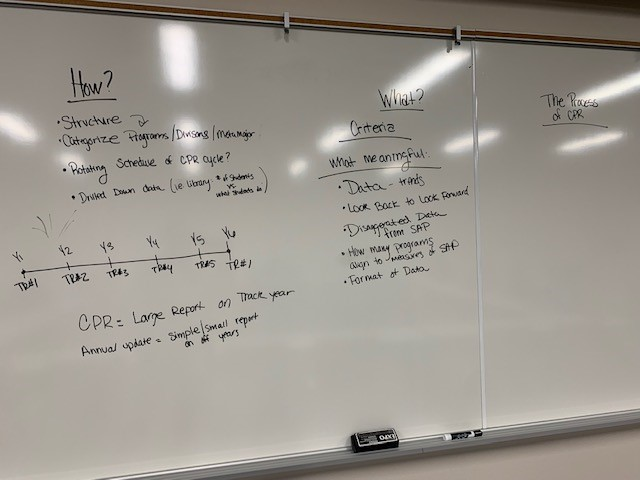 How?
• Structure
• Categorize Programs/Divisions/metamajor
• Rotating Schedule of CPR cycle?
• Drilled Down data (ie library: # of students
vs
what students do)
Y1 Y2 Y3 Y4 Y5 Y6
TR#1 TR#2 TR#3 TR#4 TR#5 TR#1
CPR = Large Report on Track year
Annual update = simple/small report
on off years
What?
Criteria
what meaningful:
• Data - trends
• Look Back to Look Forward
• Disaggregated Data
from SAP
• How many programs
align to measures of SAP
• Format of Data
The Process
of CPR
EXPO